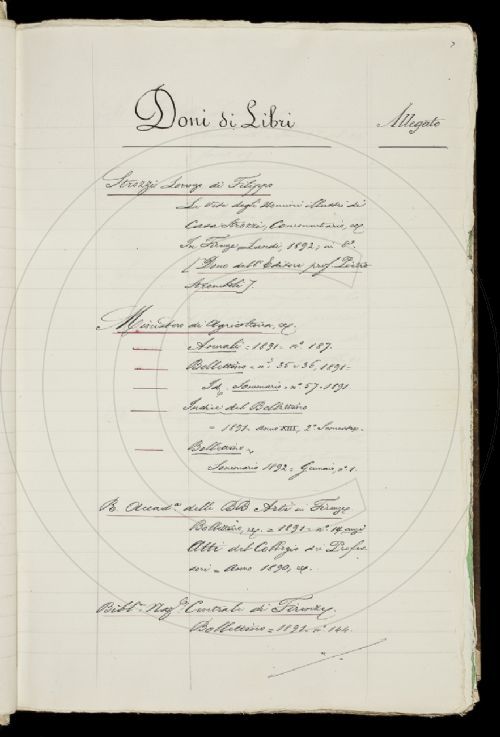 Doni di Libri
Allegato
Strozzi Lorenzo di Filippo
Le Vite degli Uomini illustri di
Casa Strozzi, Commentario, ec
In Firenze, Landi, 1892, in 8°.
[Dono dell'Editore prof. Pietro
Stromboli].
Ministero di Agricoltura, ec.
Annali = 1891 = n° 187.
Bollettino = n.i 35 e 36, 1891 =
Id. Sommario = n° 57 = 1891
Indice del Bollettino
= 1891 = Anno XIII, 2° Semestre.
Bollettino =
Sommario 1892 = Gennaio, n° 1.
R. Accad.a delle BB Arti in Firenze
Bollettino, ec. = 1891 = n° 14 anzi
Atti del Collegio dei Profes
sori = Anno 1890, ec.
Bibl.a Naz.e Centrale di Firenze.
Bollettino = 1891 = n° 144.